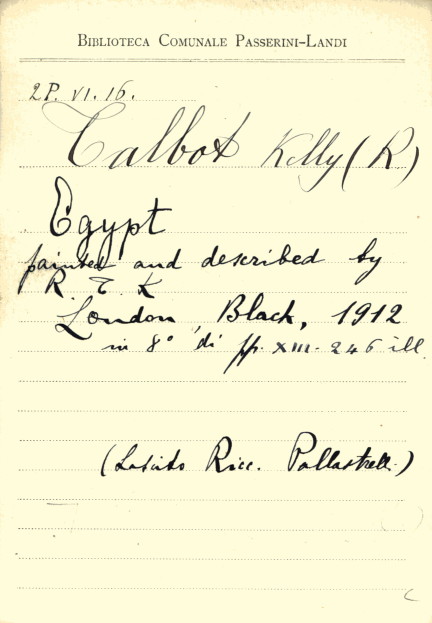 BIBLIOTECA COMUNALE PASSERINI-LANDI
2P. VI. 16.
Talbot Kelly (R)
Egypt
painted and described by
R. T. K
London, Black, 1912
in 8° di pp. XIII-246 ill.
(Lascito Ricc. Pallastrell.)